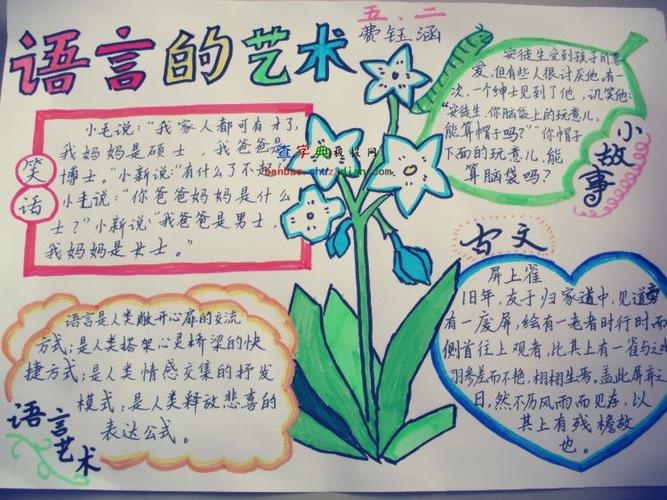 语言的艺术
五、二
费钰涵
笑话
小毛说：“我家人都可有才了，
我妈妈是硕士，我爸爸是
博士。”小新说：“有什么了不起
小毛说：“你爸爸妈妈是什么
士？”小新说：“我爸爸是男士，
我妈妈是女士。”
查字典模板网
banbao.chazidian.com
安徒生受到孩子们喜
爱，但有些人很讨厌他。有一
次，一个绅士见到了他，讥笑他：
“安徒生，你脑袋上的玩意儿，
能算帽子吗？”“你帽子
下面的玩意儿，能
算脑袋吗？
小故事
古文
屏上雀
旧年，友于归家道中，见道旁
有一废屏，绘有一老者时行时而
侧首往上观者，比其上有一雀与之
羽参差而不艳，栩栩生焉。盖此屏弃之
日，然不历风雨而见存，以
其上有残檐故
也。
语言是人类敞开心扉的交流
方式；是人类搭架心灵桥梁的快
捷方式；是人类情感交集的抒发
模式；是人类释放悲喜的
表达公式。
语言艺术